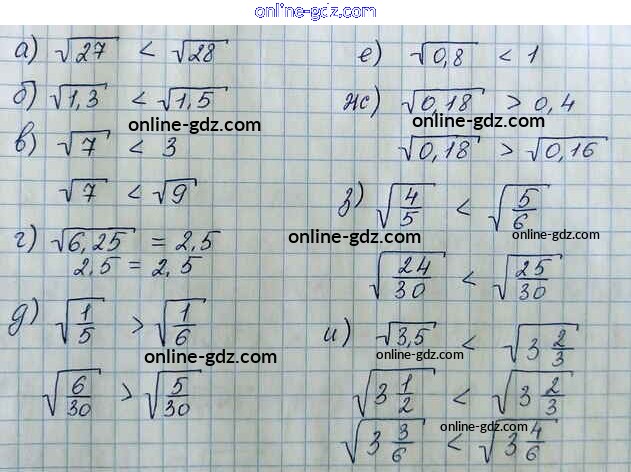 online-gdz.com
а) √27 < √28
б) √1,3 < √1,5
online-gdz.com
в) √7 < 3
√7 < √9
г) √6,25 = 2,5
2,5 = 2,5
д) √(1/5) > √(1/6)
online-gdz.com
√(6/30) > √(5/30)
е) √0,8 < 1
ж) √0,18 > 0,4
online-gdz.com
√0,18 > √0,16
з) √(4/5) < √(5/6)
online-gdz.com
online-gdz.com
√(24/30) < √(25/30)
и) √3,5 < √(3 2/3)
online-gdz.com
√(3 1/2) < √(3 2/3)
online-gdz.com
√(3 3/6) < √(3 4/6)